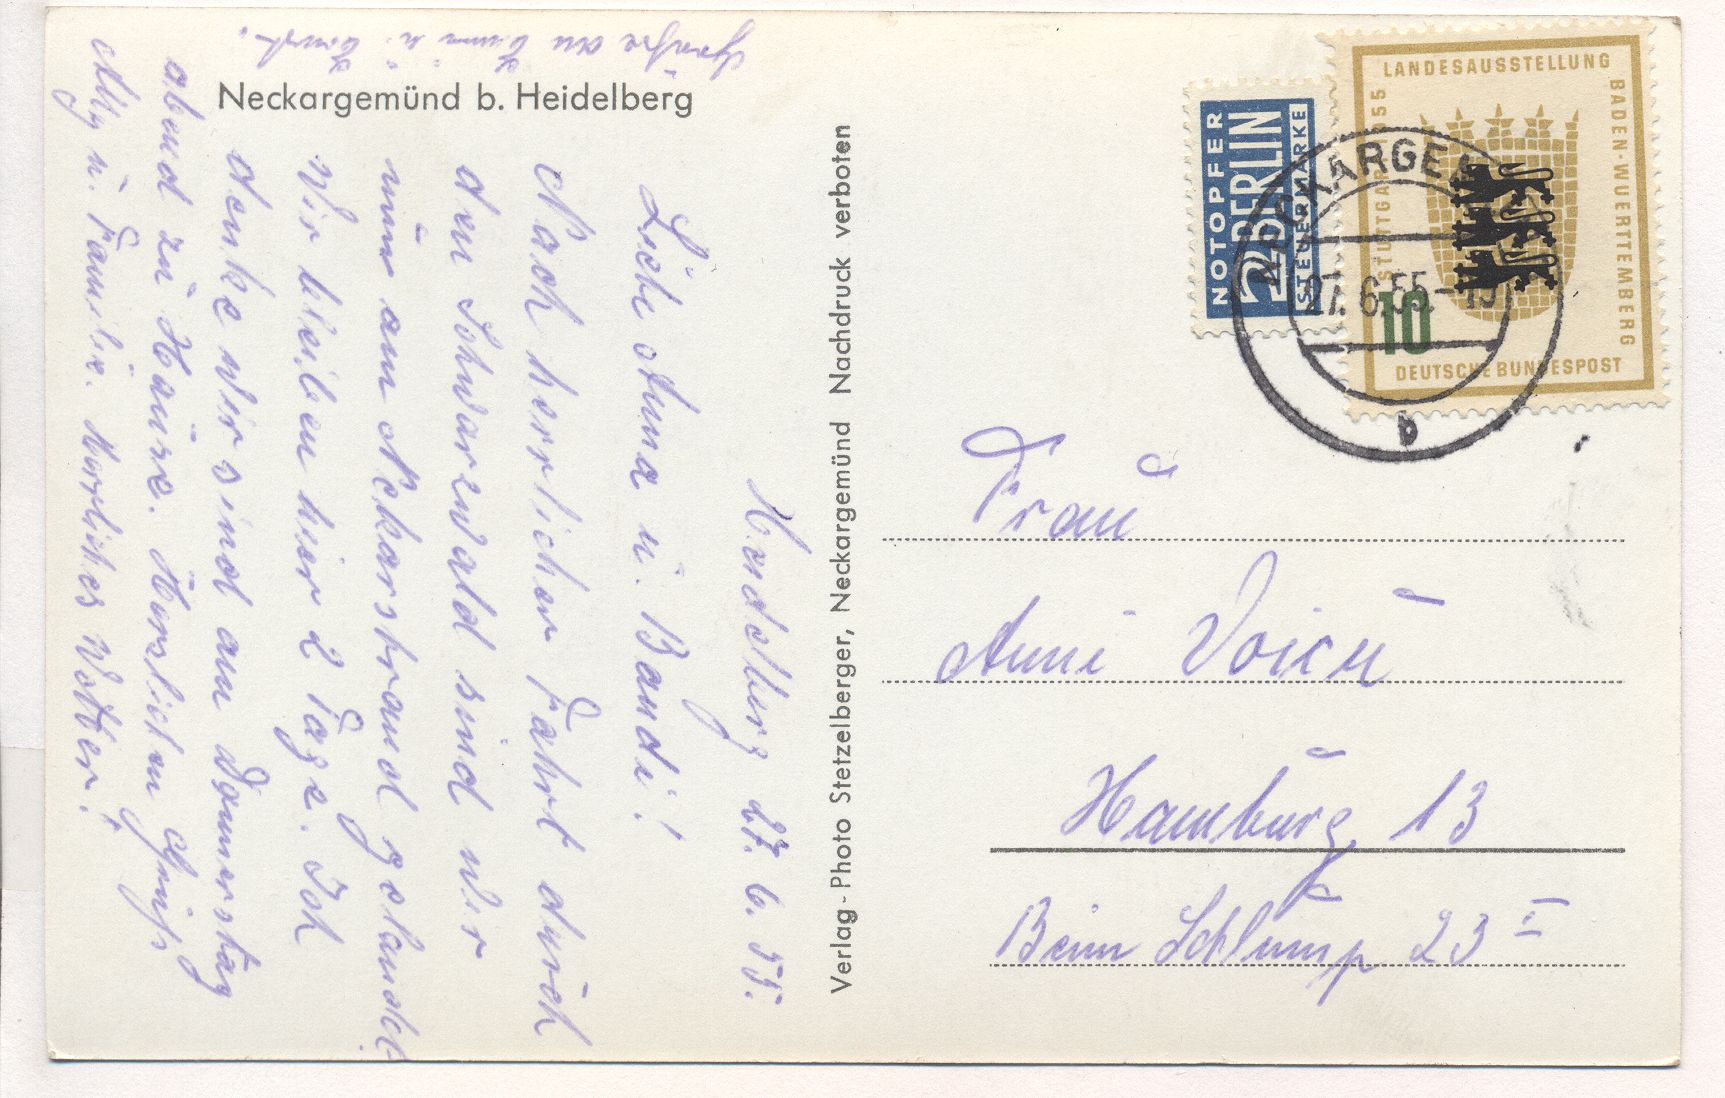 Neckargemünd b. Heidelberg
Heidelberg 27.6.55.
Liebe Anna u. Bandi!
Nach herrlicher Fahrt durch
den Schwarzwald sind wir
nun am Neckarstrand gelandet
Wir bleiben hier 2 Tage. Ich
denke wir sind am Donnerstag
abend zu Hause. Herzlichen Gruß
u. Familie. Herrliches Wetter!
Grüße an
Verlag-Photo Stetzelberger, Neckargemünd Nachdruck verboten
NOTOPFER
2 BERLIN
STEUERMARKE
LANDESAUSSTELLUNG
BADEN-WUERTTEMBERG
STUTTGART 1955
10
DEUTSCHE BUNDESPOST
NECKARGEM
27.6.55.-19
b
Frau
Anni Voicu
Hamburg 13
Beim Schlump 23 II